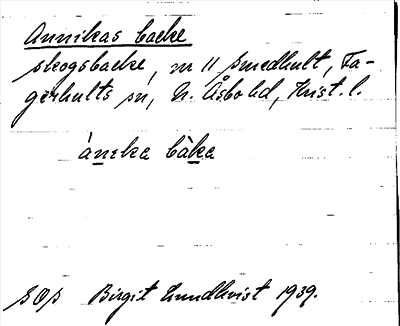 Annikas backe
skogsbacke, nr 11 Smedhult, Fa-
gerhults sn, N. Åsbo hd, Krist. l.
ànika bàka
SOS Birgit Lundkvist 1939.